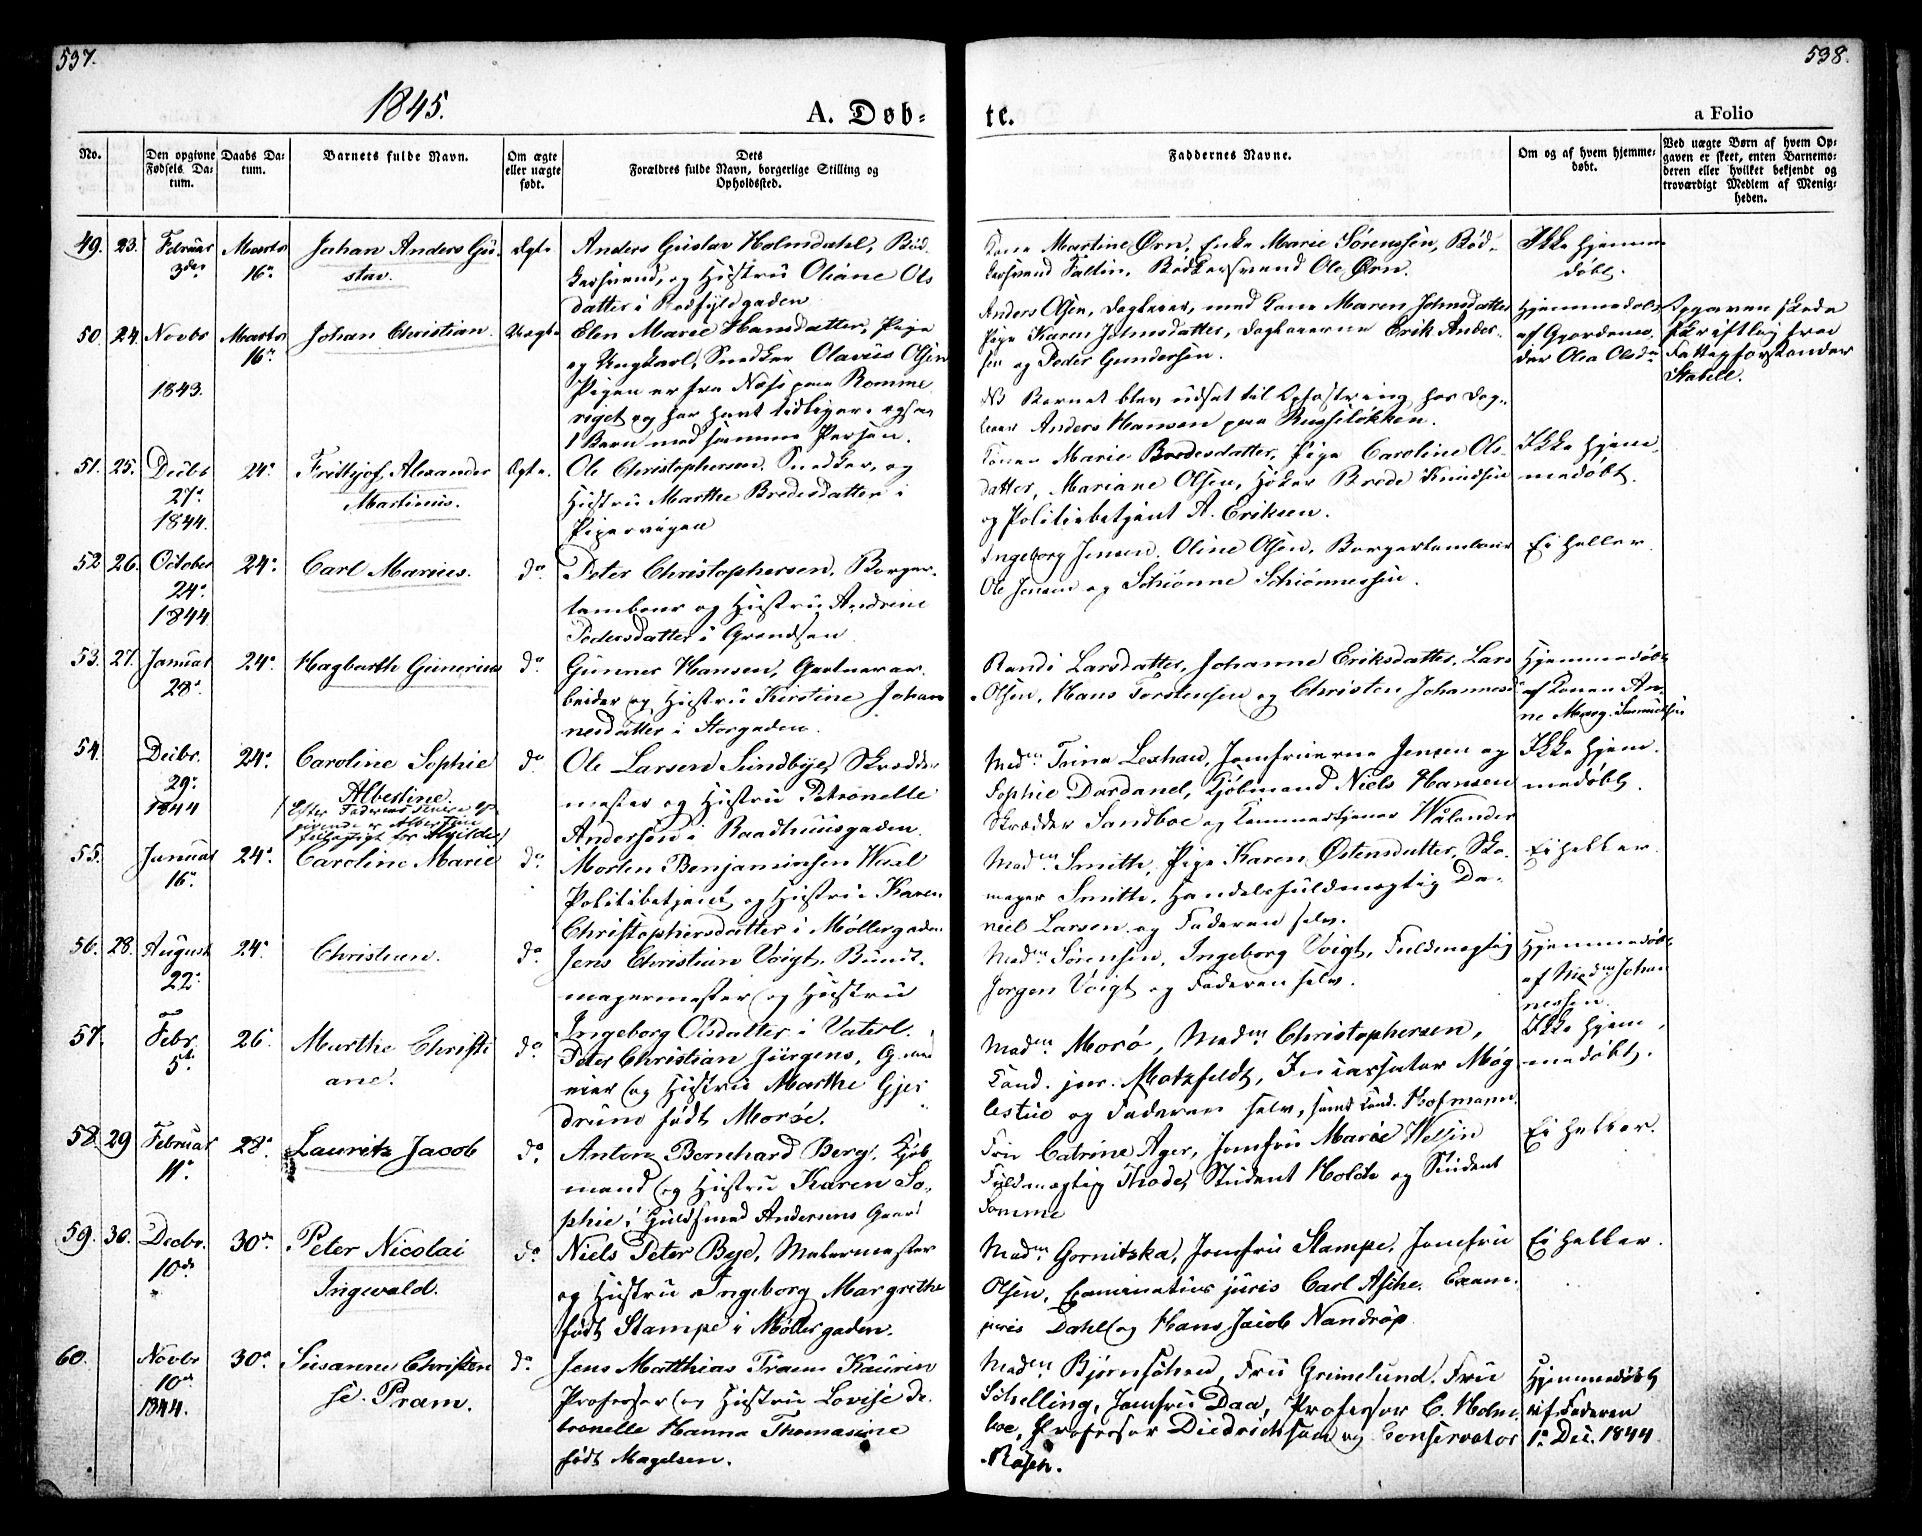 537.
538.
1845.
A. Døb-
te.
a Folio
No.
Den opgivne Fødsels Datum.
Daabs Datum.
Barnets fulde Navn.
Om ægte eller uægte født.
Dets
Forældres fulde Navn, borgerlige Stilling og Opholdssted.
Faddernes Navne.
Om og af hvem hjemmedøbt.
Ved uægte Børn af hvem Opgaven er skeet, enten Barnemoderen eller hvilket bekjendt og troværdigt Medlem af Menigheden.
49. 23. Februar 3die Marts 16de Johan Anders Gustav. Ægte
Anders Gustav Holmdahl, Bød-
kersvend, og Hustru Oliane Ols
datter i Rødfyldgaden
Kone Martine Ørn, Enke Marie Sørensen, Bød-
kersvend Faltin, Bødkersvend Ole Ørn.
Ikke hjemme
døbt.
50. 24. Novbr 1843. Marts 16de Johan Christian. Uægte
Elen Marie Hansdatter, Pige
og Ungkarl, Snedker Olavus Olsen
Pigen er fra Næs paa Romme
riget og har havt tidligere ogsaa
1 Barn med samme Person.
Anders Olsen, Daglejer, med Kone Maren Johnsdatter
Pige Karen Johnsdatter, Daglejerne Erik Ander-
sen og Peder Gundersen.
NB Barnet blev udsat til Opfostring hos Dag-
lejer Anders Hansen paa Ruseløkken.
Hjemmedøbt
af Gjordemo-
der Olea Olsd.
Opgaven skede
skriftlig fra
Fattigforstander
Stabell.
51. 25. Decbr 27de 1844. 24de Frithjof Alexander
Martinus. Ægte.
Ole Christophersen, Snedker, og
Hustru Marthe Bredesdatter i
Pipervigen
Konen Marie Bredesdatter, Pige Caroline Ols-
datter, Mariane Olsen, Høker Brede Knudsen
og Politiebetjent A. Eriksen.
Ikke hjem-
medøbt.
52. 26. October 24de 1844 24de Carl Marius. do
Peter Christophersen, Borger-
tambour og Hustru Andrine
Pedersdatter i Grændsen
Ingeborg Jensen, Oline Olsen, Borgertambour
Ole Jensen og Schiønne Schiønnessen.
Ei heller.
53. 27. Januar 28de 24de Hagbarth Gunerius do
Gunner Hansen, Gartnerar-
beider og Hustru Kirstine Johan
nesdatter i Storgaden.
Randi Larsdatter, Johanne Eriksdatter, Lars
Olsen, Hans Torstensen og Christen Johannesen
Hjemmedøbt
af Konen An-
ne Marg.
54. Decbr. 29de 1844 24de Caroline Sophie
Albertine. do
(Efter Faderens senere op
givende er Albertine
feilagtigt for Alvilde)
Ole Larsen Sundbye, Skrædder
mester og Hustru Petronelle
Andersen i Raadhuusgaden.
Madm Trine Lexhau, Jomfruerne Jensen og
Sophie Dardanel, Kjøbmand Niels Hansen
Skrædder Sandboe og Kammertjener Wålander
Ikke hjem-
medøbt.
55. Januar 16de 24de Caroline Marie do
Morten Benjaminsen Waal
Politibetjent og Hustru Karen
Christophersdatter i Møllergaden
Madm. Smith, Pige Karen Østensdatter, Sko-
mager Smith, Handelsfuldmægtig Da-
niel Larsen og Faderen selv.
Ei heller.
56. 28. August 22de 24de Christian. do
Jens Christian Voigt, Bundt-
magermester og Hustru
Ingeborg Olsdatter i Vaterl.
Madm Sørensen, Ingeborg Voigt, Fuldmægtig
Jørgen Voigt og Faderen selv.
Hjemmedøbt
af Madm Johan
nessen.
57. Febr. 5te 26de Marthe Christi
ane. do
Peter Christian Jürgens,
og Hustru Marthe Gjer
drum født Morøe.
Madm Morø, Madm Christophersen,
Cand. jur. Motzfeldt, Møg
lestue og Faderen selv, samt Cand. Hofmann.
Ikke hjem
medøbt.
58. 29 Februar 11te 28de Lauritz Jacob do
Anton Bernhard Berg, Kjøb
mand og Hustru Karen So-
phie i Guldsmed Andersens Gaard
Fru Catrine Ager, Jomfru Marie Nelsen
Fuldmægtig Thode, Student Holck og Student
Ei heller.
59. 30. Decbr. 10de 30te Peter Nicolai
Ingevald. do
Niels Peter Beje, Malermester
og Hustru Ingeborg Margrethe
født Stampe i Møllergaden.
Madm. Gornitska, Jomfru Stampe, Jomfru
Olsen, Examinatus juris Carl Asche, Exam.
juris Dahl og Hans Jacob Nandrup
Ei heller.
60. Novbr 10de 1844. 30te Susanne Christen
se Pram. do
Jens Matthias Pram Kaurin
Professor og Hustru Lovise Pe-
tronelle Hanna Thomasine
født Magelsen.
Madm Bjørnsen, Fru Grimelund, Fru
Schelling, Jomfru Daa, Professor C. Holm-
boe, Professor Diedrichsen og Conservator
Rasch.
Hjemmedøbt
af Faderen
1ste Dec. 1844.